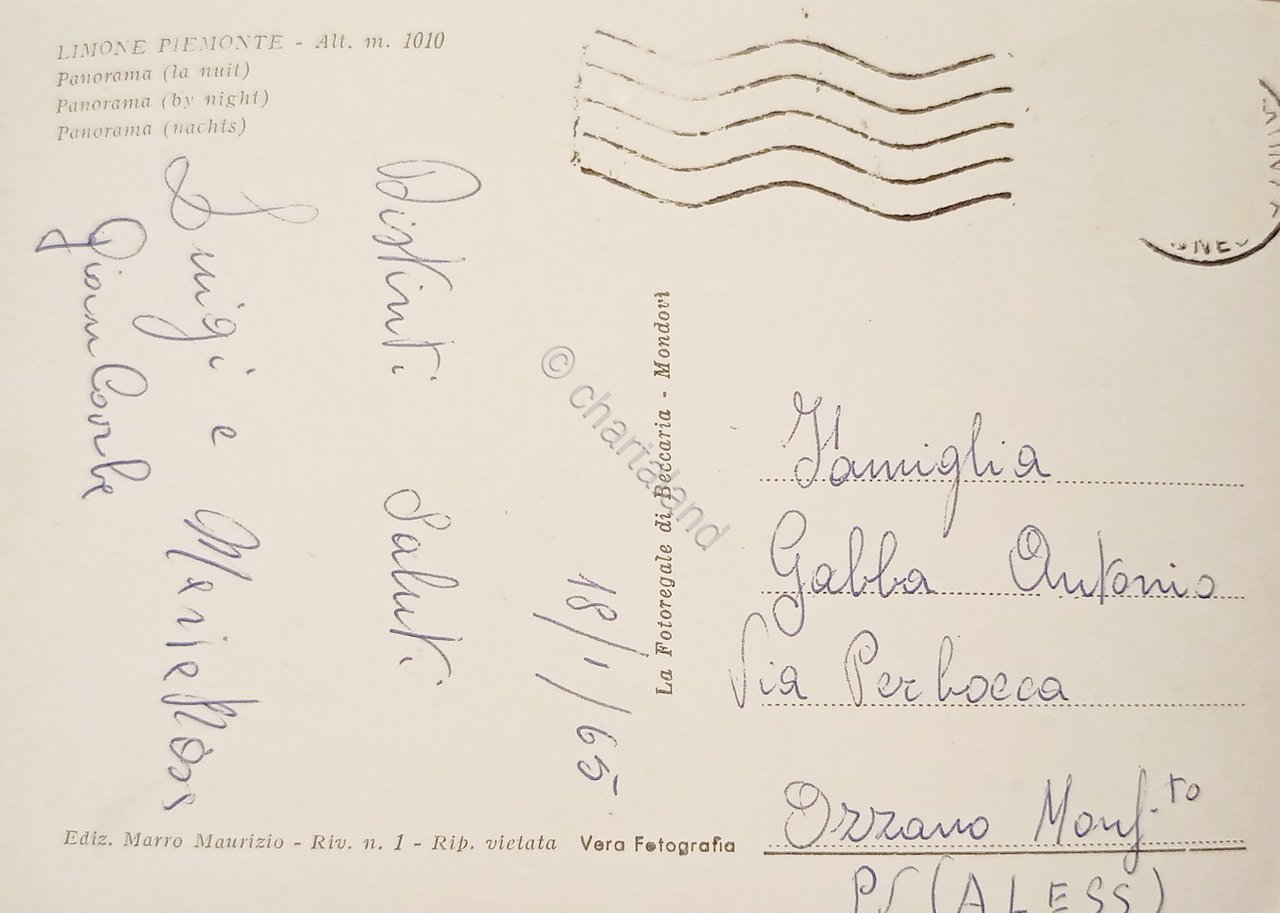 LIMONE PIEMONTE - Alt. m. 1010
Panorama (la nuit)
Panorama (by night)
Panorama (nachts)
18/1/65
Distinti Saluti
Luigi e
Gian Carlo
La Fotoregale di Beccaria - Mondovì
© chartaland
Famiglia
Gabba Antonio
Via Perbocca
Ozzano Monf.to
(ALESS)
Ediz. Marro Maurizio - Riv. n. 1 - Rip. vietata
Vera Fotografia